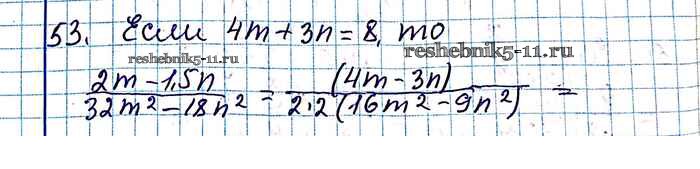 53. Если 4m + 3n = 8, то
reshebnik5-11.ru
reshebnik5-11.ru
(2m - 1,5n)/(32m² - 18n²) = (4m - 3n)/(2·2(16m² - 9n²)) =